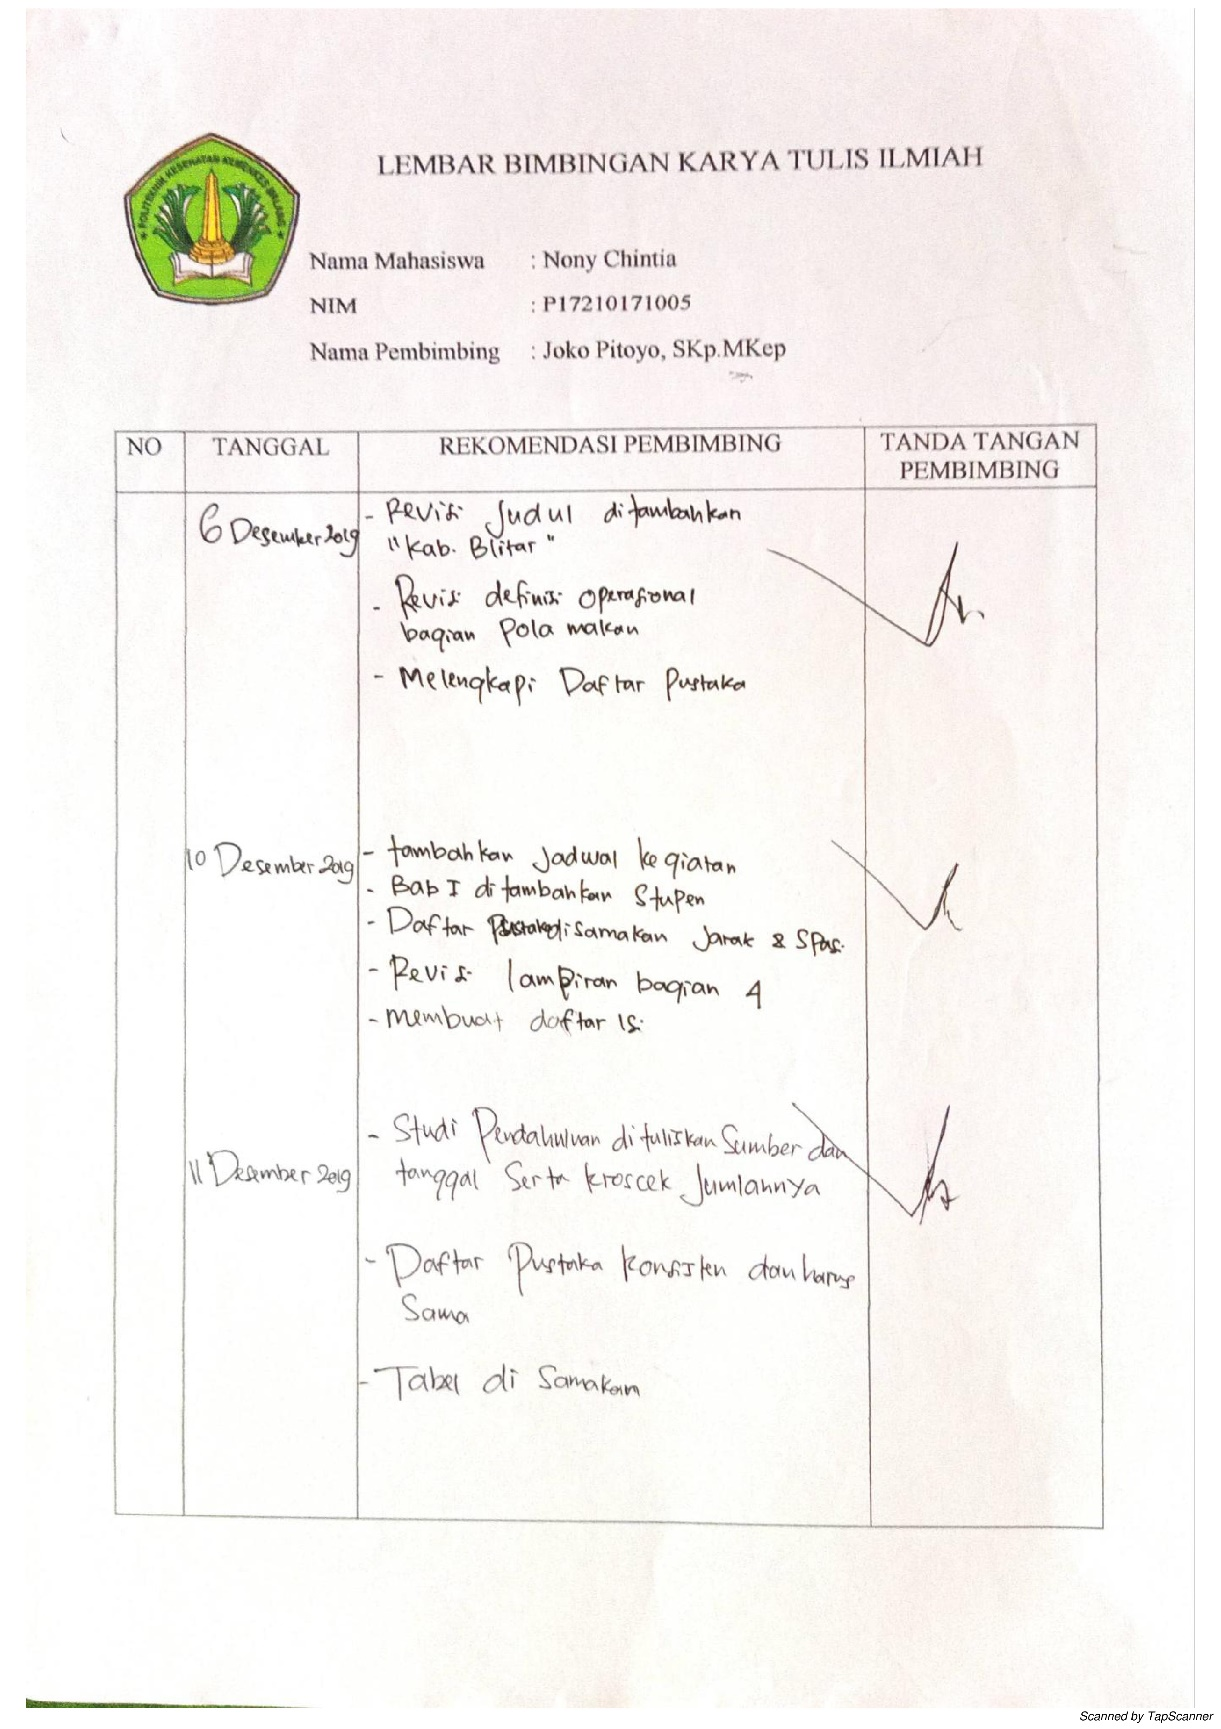 POLITEKNIK KESEHATAN KEMENKES MALANG
LEMBAR BIMBINGAN KARYA TULIS ILMIAH
Nama Mahasiswa : Nony Chintia
NIM : P17210171005
Nama Pembimbing : Joko Pitoyo, SKp.MKep
NO TANGGAL REKOMENDASI PEMBIMBING TANDA TANGAN
PEMBIMBING
6 Desember 2019 - Revisi Judul ditambahkan
"Kab. Blitar"
- Revisi definisi operasional
bagian Pola makan
- Melengkapi Daftar Pustaka
10 Desember 2019 - tambahkan Jadwal kegiatan
- Bab I ditambahkan Stupen
- Daftar Pustaka disamakan Jarak & Spasi
- Revisi lampiran bagian 4
- membuat daftar isi
- Studi Pendahuluan dituliskan Sumber dan
11 Desember 2019 tanggal Serta kroscek Jumlahnya
- Daftar Pustaka konsisten dan harus
Sama
- Tabel di Samakan
Scanned by TapScanner